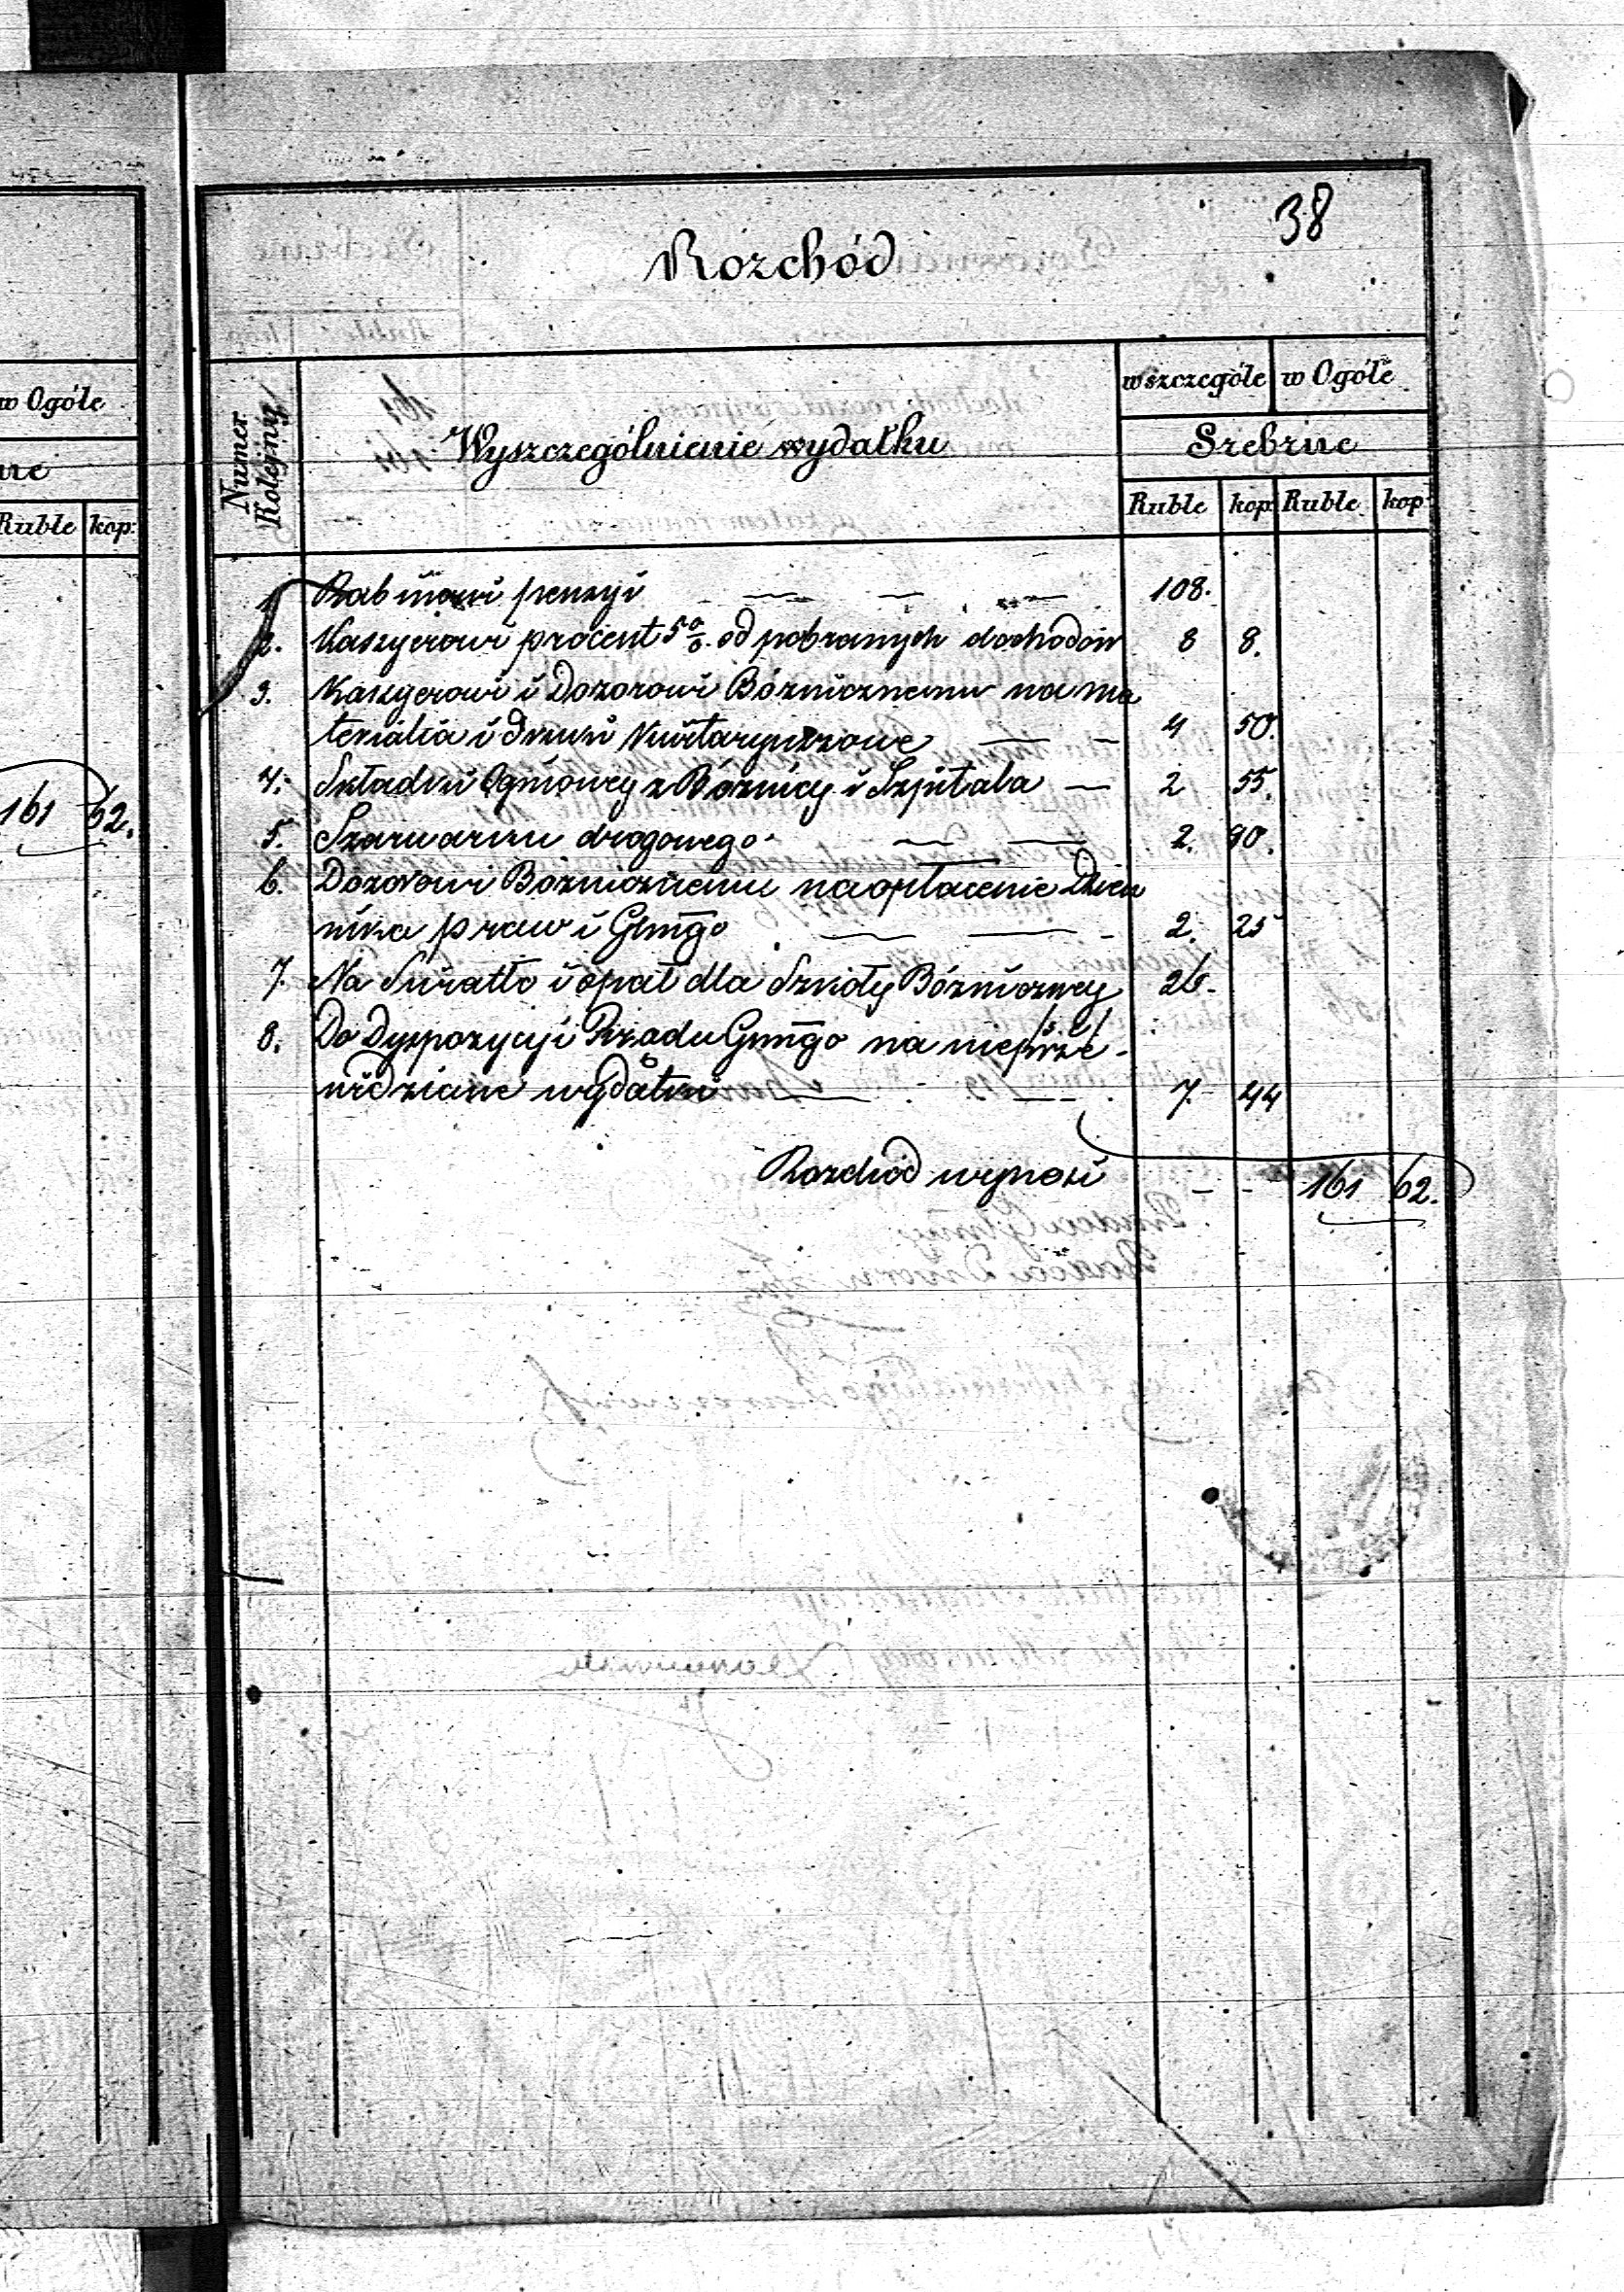 38
Rozchód
w Ogóle
Ruble kop:
161 62.
Numer Kolejny
Wyszczególnienie wydatku
w szczególe w Ogóle
Srebrne
Ruble kop Ruble kop
1. Rabinowi pensyi 108.
2. Kassyerowi procent 5% od pobranych dochodów 8 8.
3. Kassyerowi i Dozorowi Bóżnicznemu na ma
teriálía i druki Kwitaryuszowe 4 50.
4. Składki Ogniowey z Bóżnicy i Szpitala 2 55.
5. Szarwarku drogowego 2. 80.
6. Dozorowi Bóżnicznemu na opłacenie Dzien
nika praw i Gubngo 2. 25
7. Na Swiatło i opał dla Szkoły Bóżniczney 26.
8. Do Dyspozycyi Rządu Gubngo na nieprze-
widziane wydatki 7. 44
Rozchód wynosi - - 161 62.